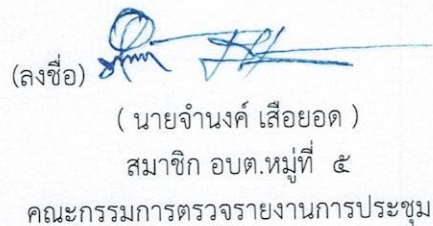 (ลงชื่อ)
( นายจำนงค์ เสือยอด )
สมาชิก อบต.หมู่ที่ ๕
คณะกรรมการตรวจรายงานการประชุม